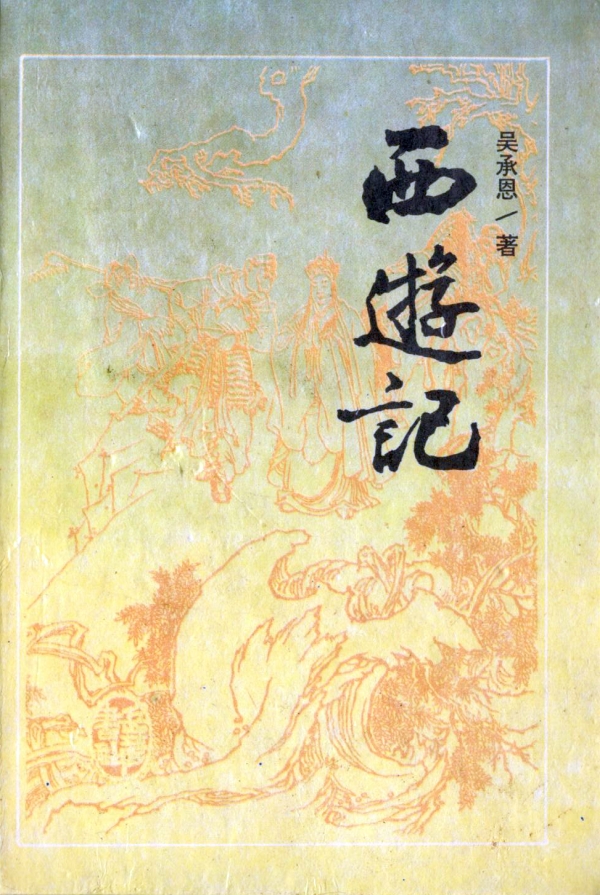 吴承恩/著
西遊記